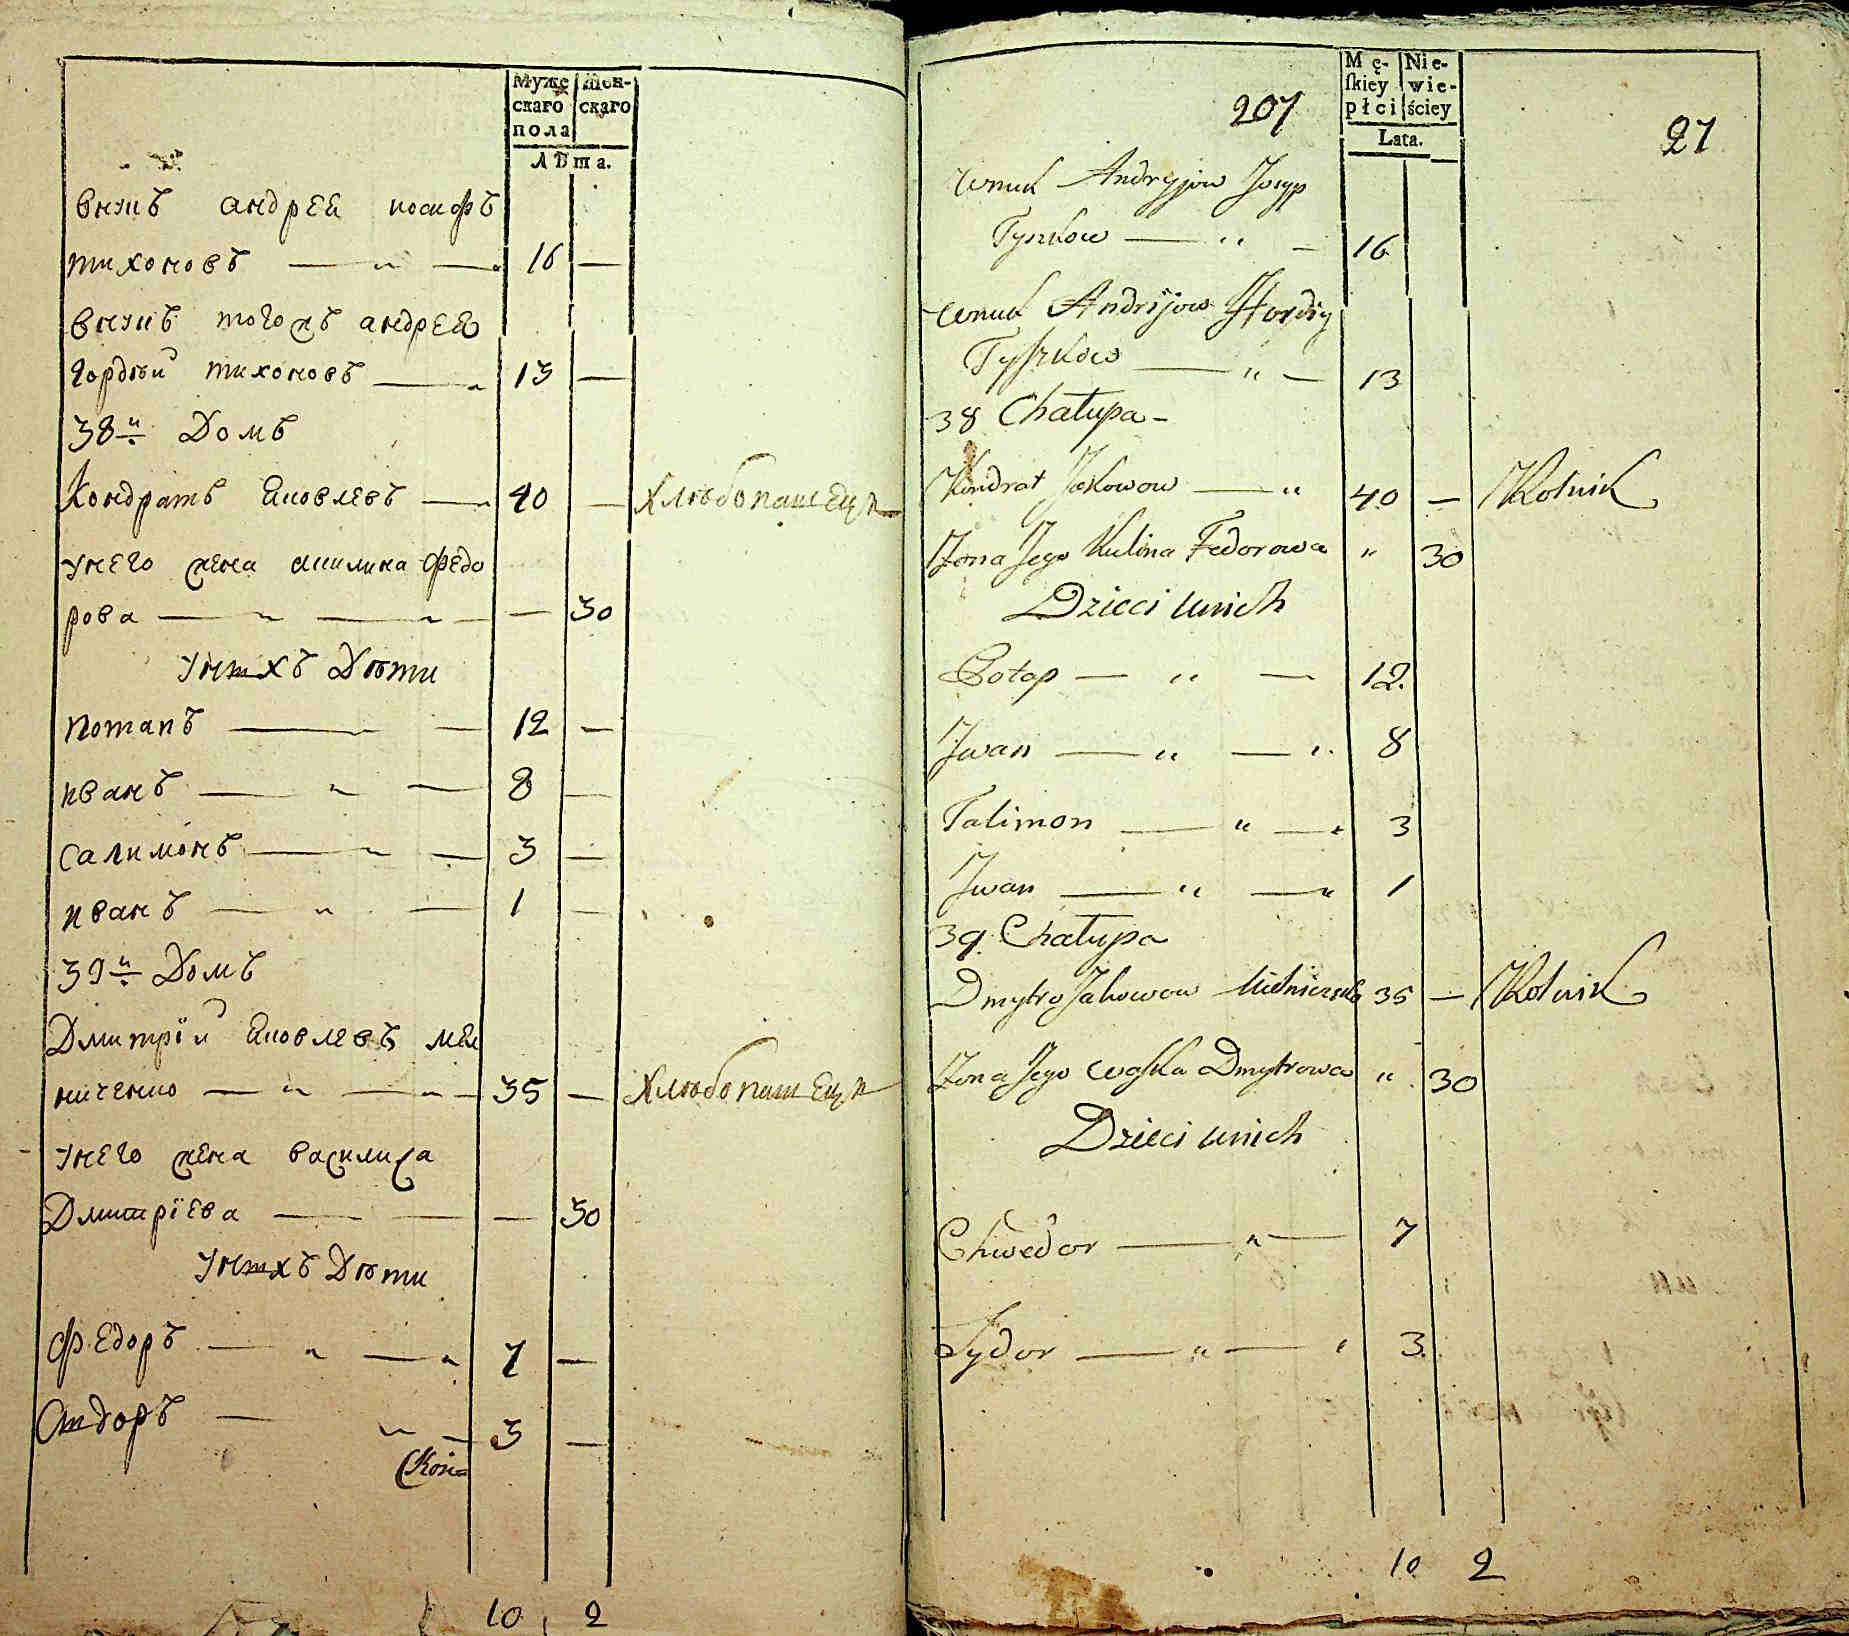 Муже Жен-
скаго скаго
пола
Лѣта.
внукъ андрея иосифъ
тихоновъ — „ — 16 —
внукъ того жъ андрея
гордѣй тихоновъ — „ 13 —
38й Домъ
Кондратъ Яковлевъ — „ 40 — хлѣбопашецъ
унего жена акилина федо
рова — „ — „ — — 30
унихъ Дѣти
потапъ — — 12 —
иванъ — „ — 8 —
салимонъ — „ — 3 —
иванъ — „ — 1 —
39й Домъ
Дмитрïй Яковлевъ мел
ниченко — „ — „ — 35 — Хлѣбопашецъ
унего жена василиса
Дмитрïева — — — 30
унихъ Дѣти
Федоръ — „ — „ 7 —
Сидоръ — „ — 3 —
10 2
207
27
Mę- Nie-
ſkiey wie-
płci ściey
Lata.
wnuk Andryjow Josyp
Tyszkow — „ — 16
wnuk Andrijow Hordiy
Tyszkow — „ — 13
38 Chałupa -
Kondrat Jakowow — „ 40 — Rolnik
Żona Jego Kulina Fedorowa „ 30
Dzieci unich
Potap — „ — 12.
Jwan — „ — „ 8
Talimon — „ — „ 3
Jwan — „ — „ 1
39. Chałupa
Dmytro Jakowow 35 — Rolnik
Żona Jego Waska Dmytrowa „ 30
Dzieci unich
Chwedor — „ — 7
Sydor — „ — „ 3.
10 2